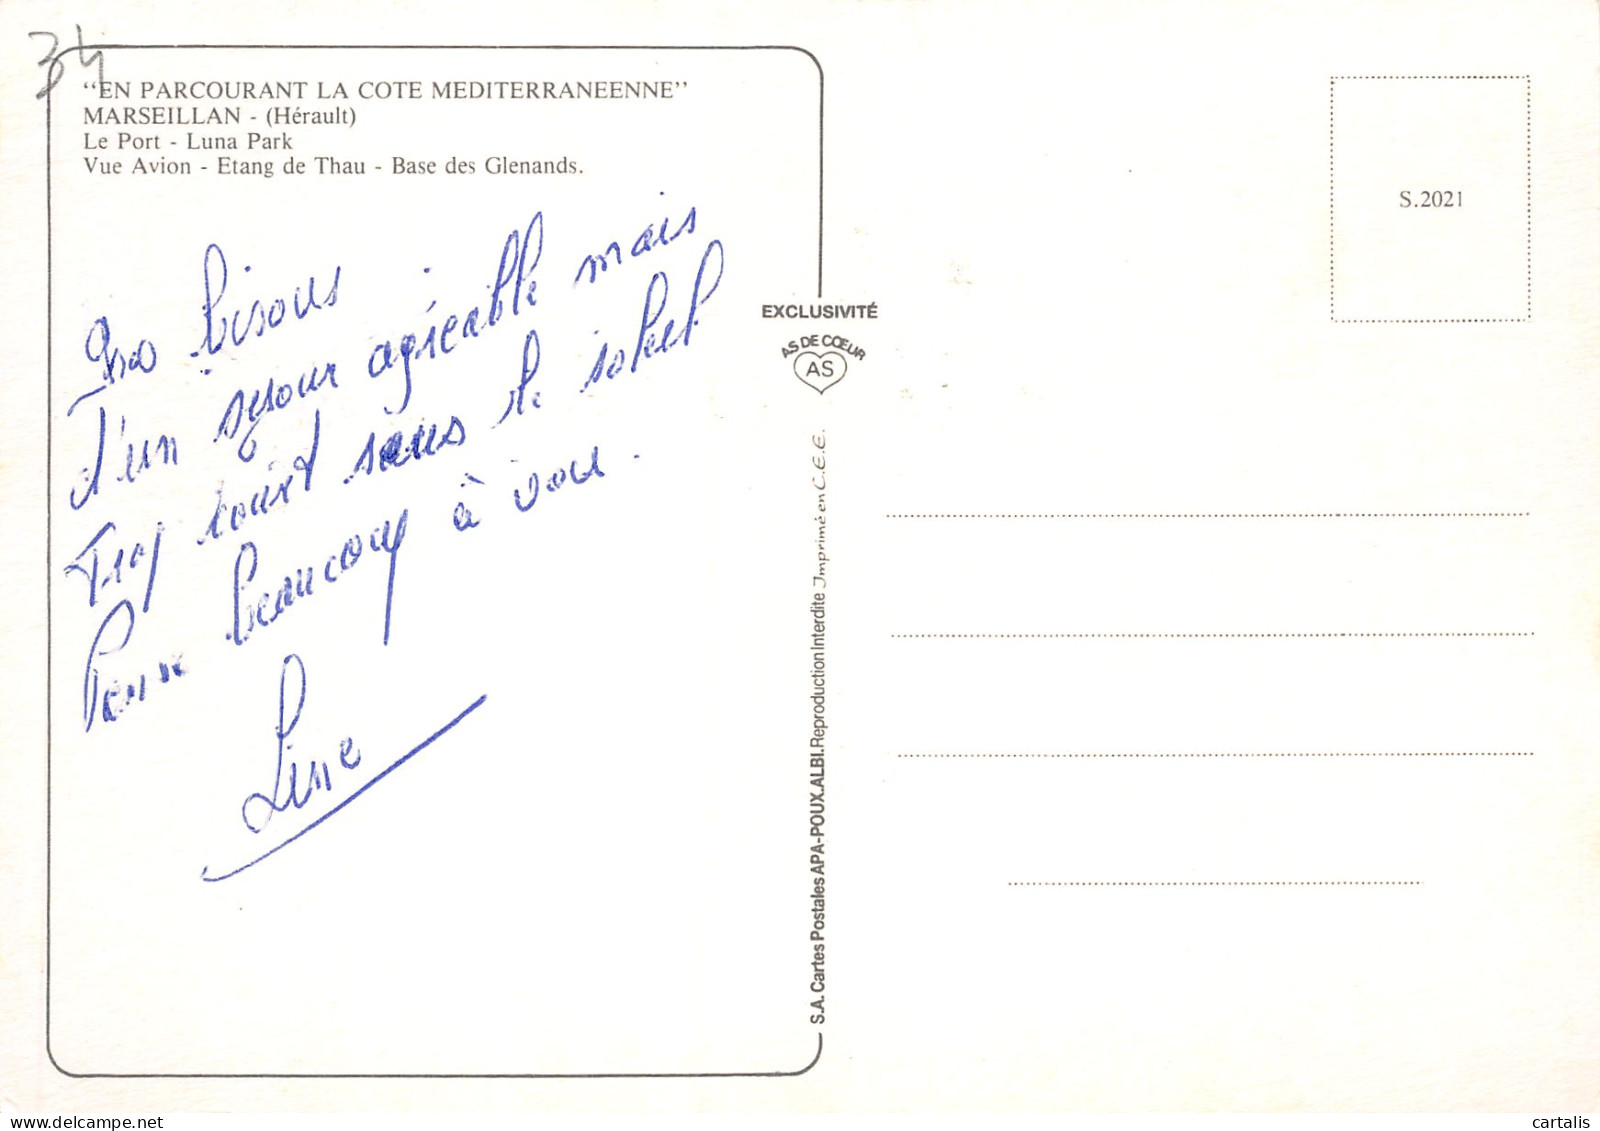 34
"EN PARCOURANT LA COTE MEDITERRANEENNE"
MARSEILLAN - (Hérault)
Le Port - Luna Park
Vue Avion - Etang de Thau - Base des Glenands.
bisous
d'un séjour agréable mais
trop court sans le soleil
Pense beaucoup à vou.
Line
EXCLUSIVITÉ
AS DE CŒUR
AS
S.A. Cartes Postales APA-POUX.ALBI. Reproduction Interdite Imprimé en C.E.E.
S.2021
cartalis
delcampe.net